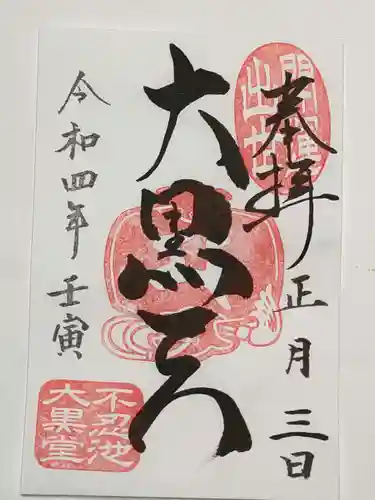 奉拝
正月三日
開運
出世
大黒天
令和四年
壬寅
不忍池
大黒堂